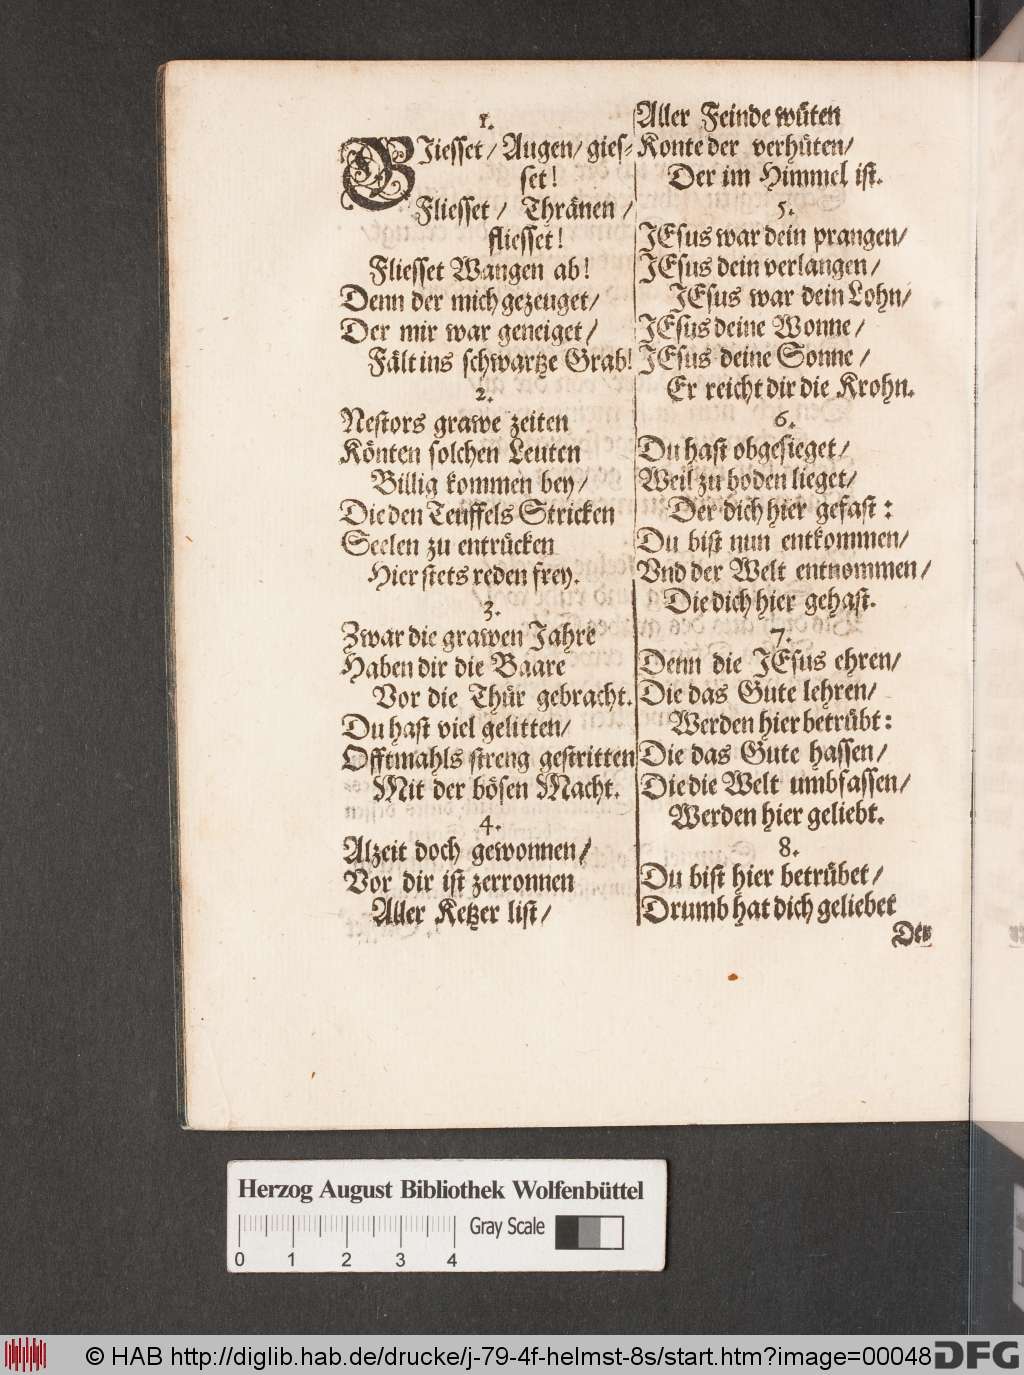 1.
GJiesset / Augen / gies-
set!
Fliesset / Thränen /
fliesset!
Fliesset Wangen ab!
Denn der mich gezeuget /
Der mir war geneiget /
Fält ins schwartze Grab!
2.
Nestors grawe zeiten
Könten solchen Leuten
Billig kommen bey /
Die den Teuffels Stricken
Seelen zu entrücken
Hier stets reden frey.
3.
Zwar die grawen Jahre
Haben dir die Baare
Vor die Thür gebracht.
Du hast viel gelitten /
Offtmahls streng gestritten
Mit der bösen Macht.
4.
Alzeit doch gewonnen /
Vor dir ist zerronnen
Aller Ketzer list /
Aller Feinde wüten
Konte der verhüten /
Der im Himmel ist.
5.
JEsus war dein prangen /
JEsus dein verlangen /
JEsus war dein Lohn /
JEsus deine Wonne /
JEsus deine Sonne /
Er reicht dir die Krohn.
6.
Du hast obgesieget /
Weil zu boden lieget /
Der dich hier gefast:
Du bist nun entkommen /
Vnd der Welt entnommen /
Die dich hier gehast.
7.
Denn die JEsus ehren /
Die das Gute lehren /
Werden hier betrübt:
Die das Gute hassen /
Die die Welt umbfassen /
Werden hier geliebt.
8.
Du bist hier betrübet /
Drumb hat dich geliebet
Der
Herzog August Bibliothek Wolfenbüttel
Gray Scale
0 1 2 3 4
© HAB http://diglib.hab.de/drucke/j-79-4f-helmst-8s/start.htm?image=00048
DFG